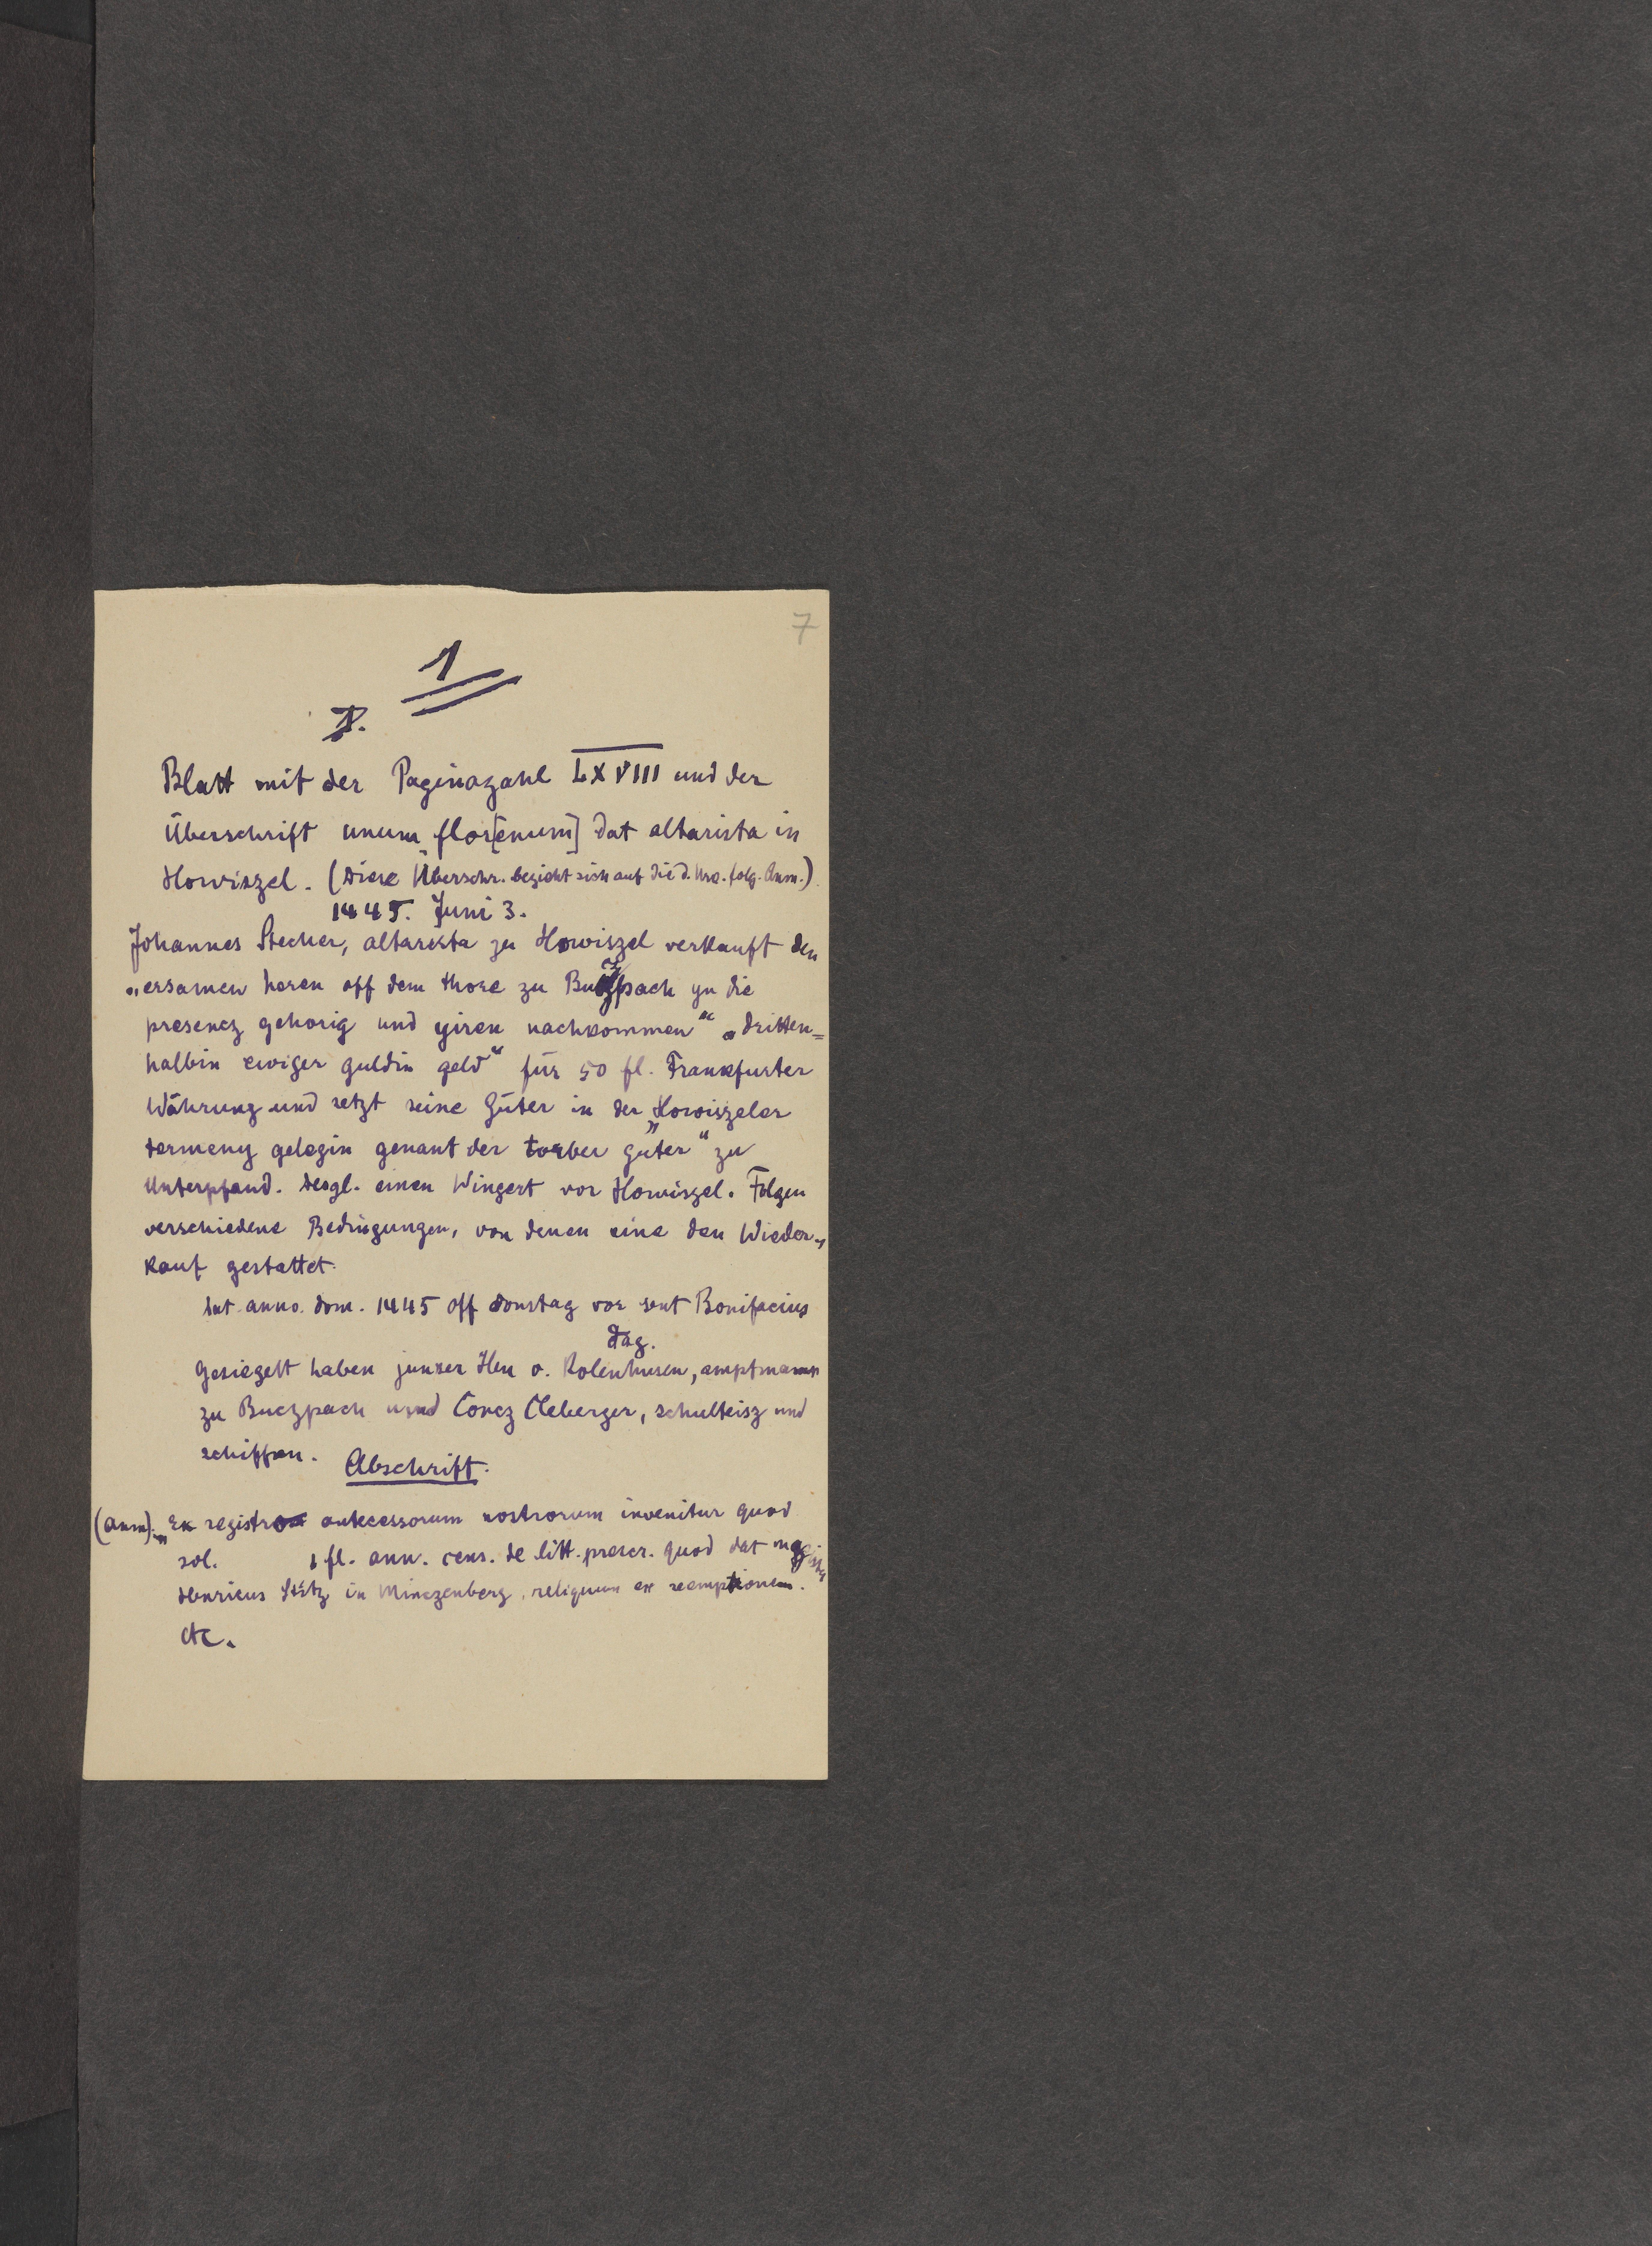 7
1
I.
Blatt mit der Paginazahl LXVIII und der
Überschrift unum flor[enum] dat altarista in
Howiszel. (Diese Überschr. bezieht sich auf die d. Urk. folg. Anm.)
1445. Juni 3.
Johannes Stecher, altarista zu Howiszel verkauft den
„ersamen heren off dem thore zu Buczpach yn die
presencz gehorig und yiren nachkommen“ „dritten=
halbin ewiger guldin geld“ für 50 fl. Frankfurter
Währung und setzt seine Güter in der „Howiszeler
termeny gelegin genant der torber guter“ zu
Unterpfand. desgl. einen Wingert vor Howiszel. Folgen
verschiedene Bedingungen, von denen eine den Wieder„
kauf gestattet.
Dat. anno. dom. 1445 off donstag vor sent Bonifacius
dag.
Gesiegelt haben junker Hen v. Rolenhusen, amptmann
zu Buczpach und Concz Cleberger, schulteisz und
schiffen.
Abschrift.
(Anm). „Ex registro antecessorum nostrorum invenitur quod
sol. 1 fl. ann. cens. de litt. prescr. quod dat magister
Henricus in Minczenberg, reliquum ex reemptionem.
etc.